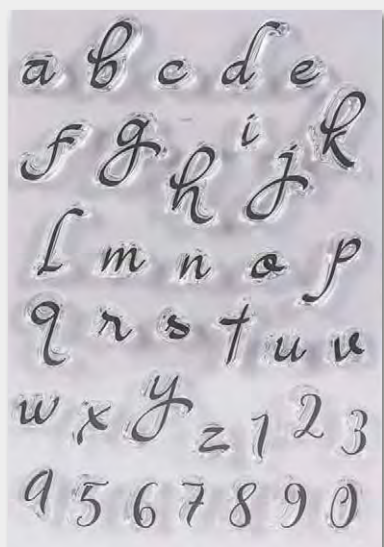 a b c d e
f g h i j k
l m n o p
q r s t u v
w x y z 1 2 3
9 5 6 7 8 9 0